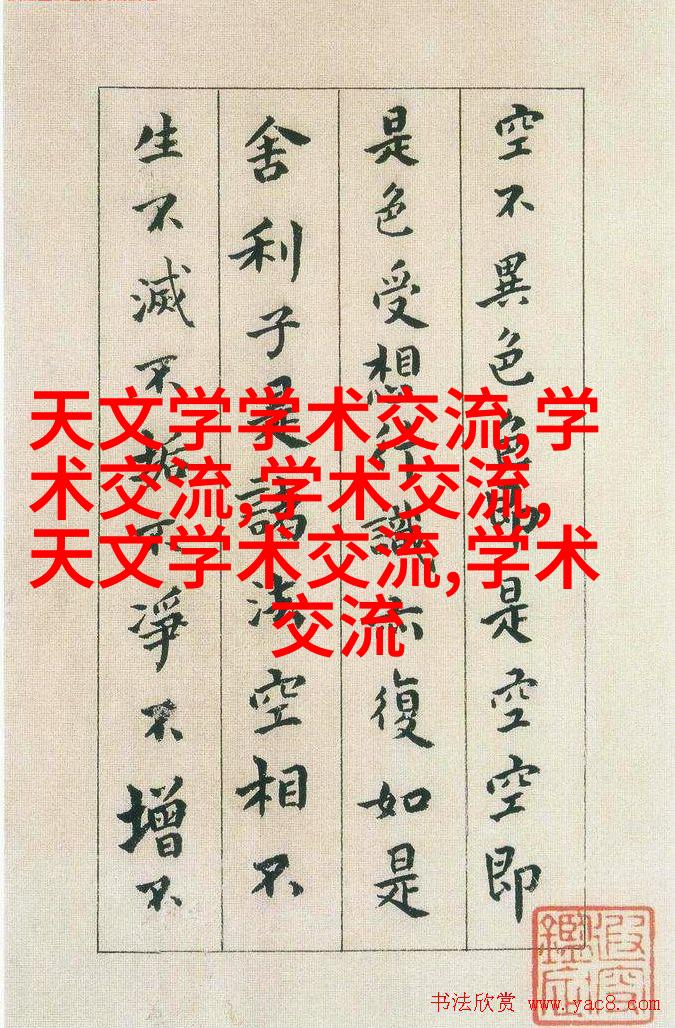 空不異色色即是空空即
是色受想行識亦復如是
舍利子是諸法空相不
生不滅不垢不淨不增不
天文学学术交流,学
术交流,学术交流,
天文学术交流,学术
交流
书法欣赏 www.yac8.com